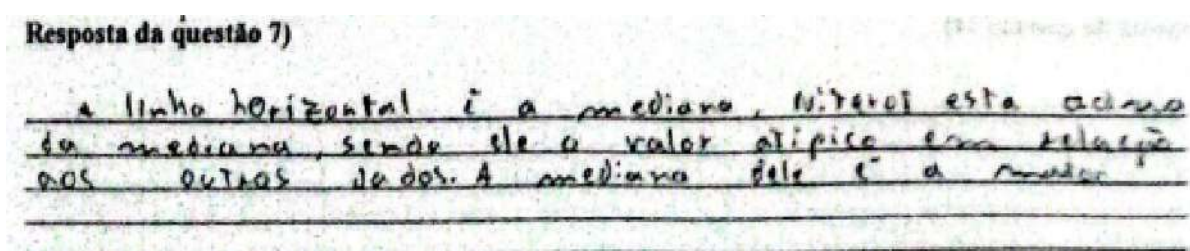 Resposta da questão 7)
A linha horizontal é a mediana, Niterói esta acima
da mediana, sendo ele o valor atípico em relação
aos outros dados. A mediana dele é a maior